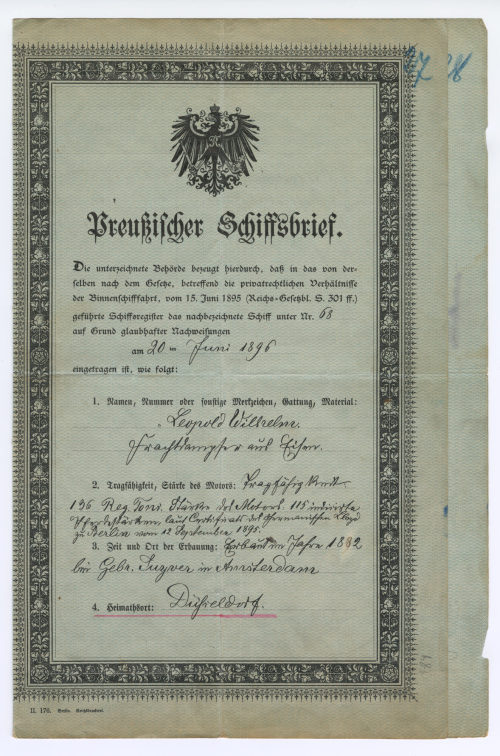 Preußischer Schiffsbrief.
Die unterzeichnete Behörde bezeugt hierdurch, daß in das von der-
selben nach dem Gesetze, betreffend die privatrechtlichen Verhältnisse
der Binnenschifffahrt, vom 15. Juni 1895 (Reichs-Gesetzbl. S. 301 ff.)
geführte Schiffsregister das nachbezeichnete Schiff unter Nr. 68
auf Grund glaubhafter Nachweisungen
am 20 ten Juni 1896
eingetragen ist, wie folgt:
1. Namen, Nummer oder sonstige Merkzeichen, Gattung, Material:
„Leopold Wilhelm.
Frachtdampfer aus Eisen.
2. Tragfähigkeit, Stärke des Motors: Tragfähigkeit
136 Reg. Tons. Stärke des Motors: 115 indicirte
Pferdestärken, laut Certificats des Germanischen Lloyd
zu Berlin vom 12 September 1895.
3. Zeit und Ort der Erbauung: Erbaut im Jahre 1882
bei Gebr. in Amsterdam
4. Heimathsort: Düsseldorf.
II. 176. Berlin. Reichsdruckerei.